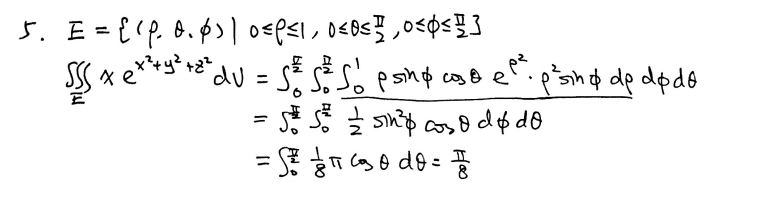 5. E = {(ρ, θ, φ) | 0≤ρ≤1, 0≤θ≤π/2, 0≤φ≤π/2}
∭_E x e^{x²+y²+z²} dV = ∫_0^{π/2} ∫_0^{π/2} ∫_0^1 ρ sinφ cosθ e^{ρ²} · ρ² sinφ dρ dφ dθ
= ∫_0^{π/2} ∫_0^{π/2} 1/2 sin²φ cosθ dφ dθ
= ∫_0^{π/2} 1/8 π cosθ dθ = π/8